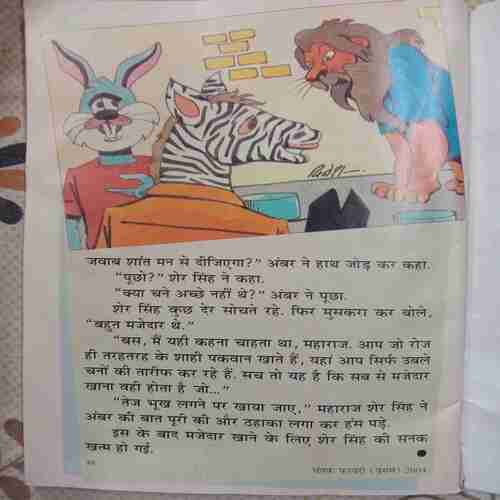 जवाब शांत मन से दीजिएगा?” अंबर ने हाथ जोड़ कर कहा.
“पूछो?” शेर सिंह ने कहा.
“क्या चने अच्छे नहीं थे?” अंबर ने पूछा.
शेर सिंह कुछ देर सोचते रहे. फिर मुसकरा कर बोले,
“बहुत मजेदार थे.”
“बस, मैं यही कहना चाहता था, महाराज. आप जो रोज
ही तरहतरह के शाही पकवान खाते हैं, यहां आप सिर्फ उबले
चनों की तारीफ कर रहे हैं. सच तो यह है कि सब से मजेदार
खाना वही होता है जो...”
“तेज भूख लगने पर खाया जाए,” महाराज शेर सिंह ने
अंबर की बात पूरी की और ठहाका लगा कर हंस पड़े.
इस के बाद मजेदार खाने के लिए शेर सिंह की सनक
खत्म हो गई.
फरवरी